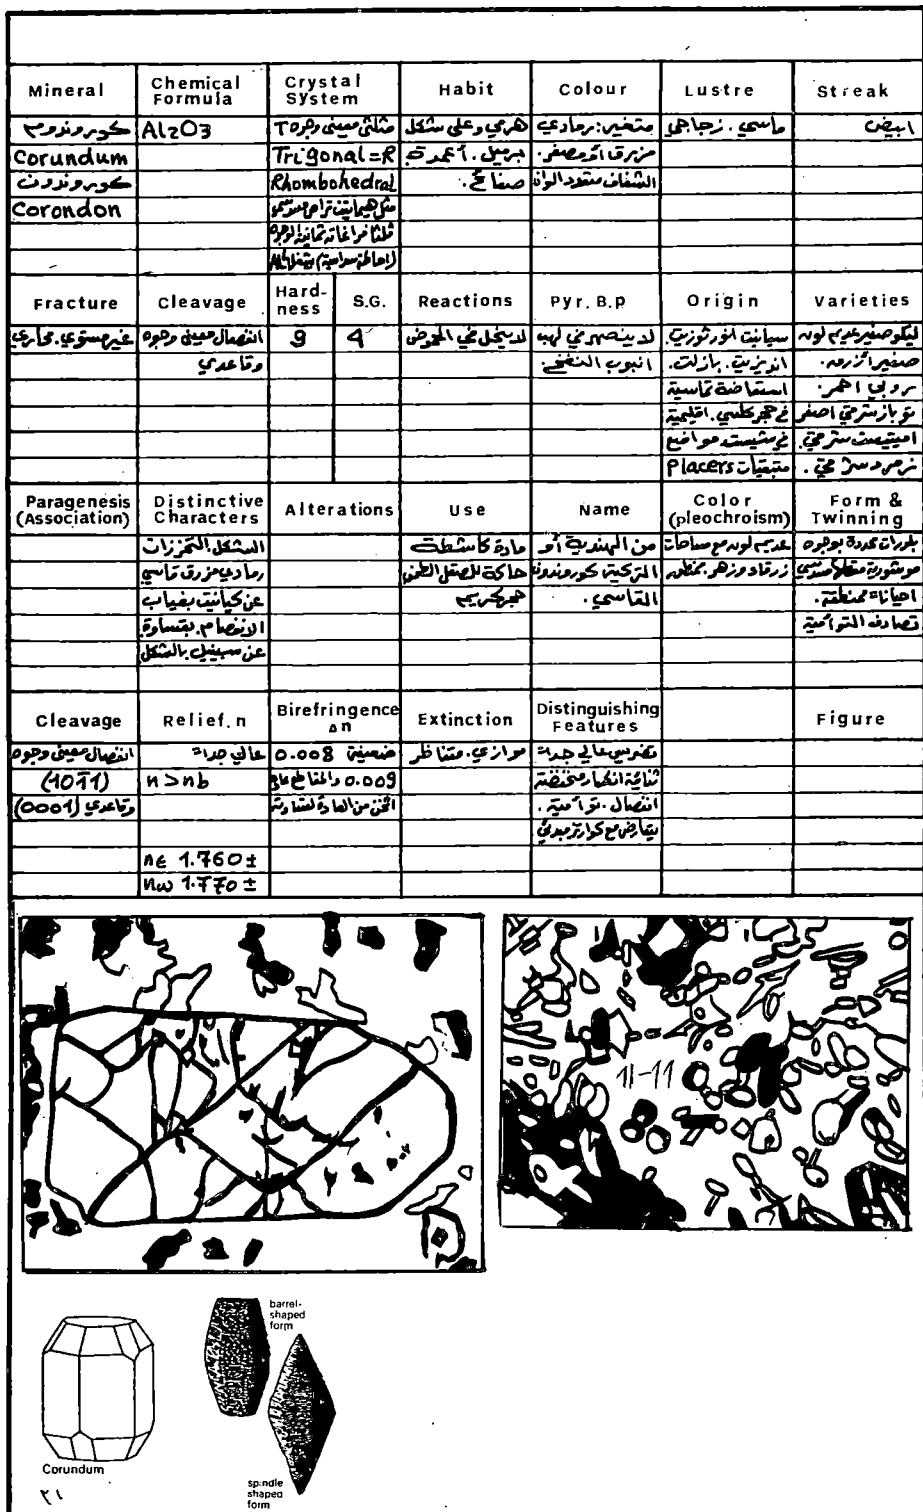 Mineral	Chemical Formula	Crystal System	Habit	Colour	Lustre	Streak
كوروندوم	Al2O3	مثلثي معيني وجوه T	هرمي وعلى شكل	متغير: رمادي	ماسي. زجاجي	ابيض
Corundum	Trigonal=R	برميل. أعمدة.	مزرق أو مصفر.
كوروندون	Rhombohedral	صفائح.	الشفاف متعدد الوان
Corondon
Fracture	Cleavage	Hard-ness	S.G.	Reactions	Pyr. B.p	Origin	Varieties
غير مستوي. محاري	انفصال معيني وجوه	9	4	لا ينحل في الحموض	لا ينصهر في لهب	سيانيت انورثوزيت.	ليكوصفير عديم لون
وقاعدي	انبوب النفخ.	انديزيت. بازلت.	صفير أزرق.
استحاضة تماسية	روبي احمر.
في حجر كلسي. اقليمية	توباز شرقي اصفر
في شيست. مواضع	اميتيست شرقي.
متبقيات Placers	زمرد شرقي.
Paragenesis (Association)	Distinctive Characters	Alterations	Use	Name	Color (pleochroism)	Form & Twinning
الشكل. التحززات	مادة كاشطة	من الهندية أو	عديم لون مع مساحات	بلورات محددة بوجوه
رمادي مزرق قاسي	حاكة للصقل الطحن	التركية كوروندون	زرقاء وزهر بمنطقه	موشورية مقطعها سداسي
عن كيانيت بغياب	حجر كريم	القاسي.	احياناً ممنطقة.
الانفصام. بقساوة	تصادف التوأمية
عن سبينيل بالشكل
Cleavage	Relief. n	Birefringence Δn	Extinction	Distinguishing Features	Figure
انفصال معيني وجوه	عالي جداً	ضعيفة 0.008	موازي. متناظر	تضريس عالي جداً
(101̄1)	n>nb	0.009 والمقاطع عالي	ثنائية انكسار منخفضة
وقاعدي (0001)	اثخن من العادة لقساوته	انفصال. توأمية.
يتعارض مع كوارتز مبدئي
nε 1.760±
nω 1.770±
11-11
barrel-
shaped
form
Corundum
spindle
shaped
form
٢١